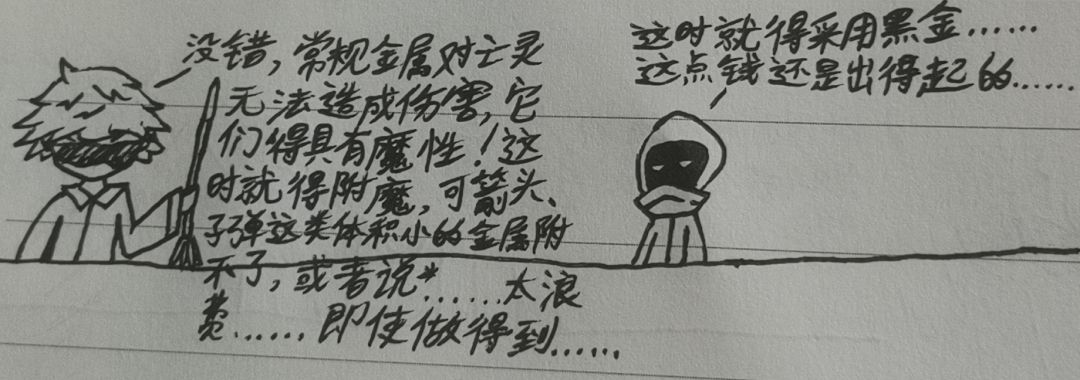 没错，常规金属对亡灵
无法造成伤害，它
们得具有魔性！这
时就得附魔，可箭头、
子弹这类体积小的金属附
不了，或者说*……太浪
费……即使做得到……
这时就得采用黑金……
这点钱还是出得起的……